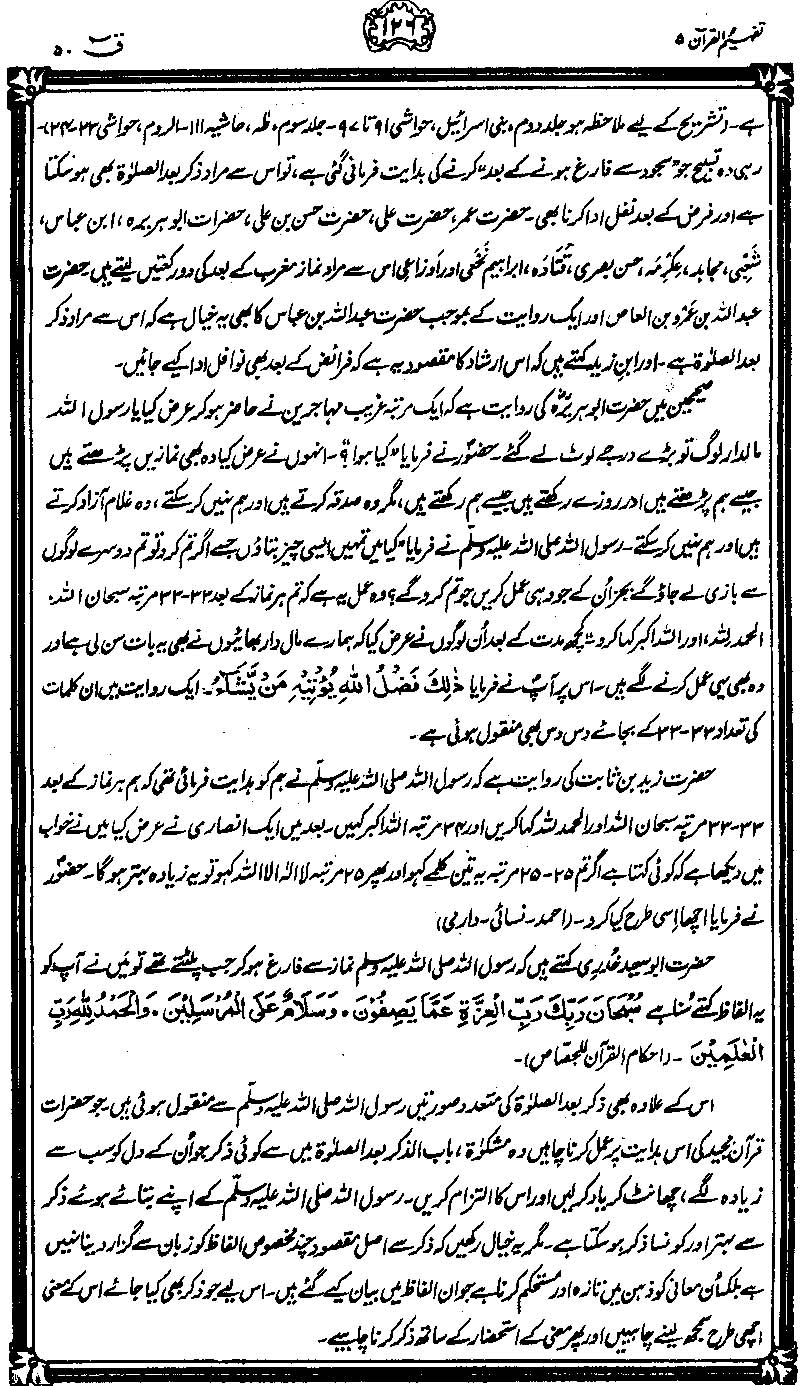 تفہیم القرآن ۵
۱۲۶
قٓ ۵۰
ہے۔ (تشریح کے لیے ملاحظہ ہو جلد دوم، بنی اسرائیل، حواشی ۹۱ تا ۹۷۔ جلد سوم، طٰہٰ، حاشیہ ۱۱۱۔ الروم، حواشی ۲۳-۲۴)۔
رہی وہ تسبیح جو "سجود سے فارغ ہونے کے بعد" کرنے کی ہدایت فرمائی گئی ہے، تو اس سے مراد ذکر بعد الصلوٰۃ بھی ہو سکتا
ہے اور فرض کے بعد نفل ادا کرنا بھی۔ حضرت عمر، حضرت علی، حضرت حسن بن علی، حضرات ابوہریرہ، ابن عباس،
شَعْبِی، مجاہد، عِکرِمہ، حسن بصری، قَتَادَہ، ابراہیم نَخَعی اور اَوزاعی اس سے مراد نماز مغرب کے بعد کی دو رکعتیں لیتے ہیں۔ حضرت
عبداللہ بن عَمْرو بن العاص اور ایک روایت کے بموجب حضرت عبداللہ بن عباس کا بھی یہ خیال ہے کہ اس سے مراد ذکر
بعد الصلوٰۃ ہے۔ اور ابنِ زید کہتے ہیں کہ اس ارشاد کا مقصود یہ ہے کہ فرائض کے بعد بھی نوافل ادا کیے جائیں۔
صحیحین میں حضرت ابوہریرہؓ کی روایت ہے کہ ایک مرتبہ غریب مہاجرین نے حاضر ہو کر عرض کیا یا رسول اللہ
مالدار لوگ تو بڑے درجے لوٹ لے گئے۔ حضورؐ نے فرمایا "کیا ہوا"؟۔ انہوں نے عرض کیا وہ بھی نمازیں پڑھتے ہیں
جیسے ہم پڑھتے ہیں اور روزے رکھتے ہیں جیسے ہم رکھتے ہیں، مگر وہ صدقہ کرتے ہیں اور ہم نہیں کر سکتے، وہ غلام آزاد کرتے
ہیں اور ہم نہیں کر سکتے۔ رسول اللہ صلی اللہ علیہ وسلم نے فرمایا "کیا میں تمہیں ایسی چیز بتاؤں جسے اگر تم کرو تو تم دوسرے لوگوں
سے بازی لے جاؤ گے بجز اُن کے جو وہی عمل کریں جو تم کرو گے؟ وہ عمل یہ ہے کہ تم ہر نماز کے بعد ۳۳-۳۳ مرتبہ سبحان اللہ،
الحمد للہ، اور اللہ اکبر کہا کرو"۔ کچھ مدت کے بعد اُن لوگوں نے عرض کیا کہ ہمارے مال دار بھائیوں نے بھی یہ بات سن لی ہے اور
وہ بھی یہی عمل کرنے لگے ہیں۔ اس پر آپؐ نے فرمایا ذٰلِكَ فَضْلُ اللهِ يُؤْتِيْهِ مَنْ يَّشَآءُ۔ ایک روایت میں ان کلمات
کی تعداد ۳۳-۳۳ کے بجائے دس دس بھی منقول ہوئی ہے۔
حضرت زید بن ثابت کی روایت ہے کہ رسول اللہ صلی اللہ علیہ وسلم نے ہم کو ہدایت فرمائی تھی کہ ہم ہر نماز کے بعد
۳۳-۳۳ مرتبہ سبحان اللہ اور الحمد للہ کہا کریں اور ۳۴ مرتبہ اللہ اکبر کہیں۔ بعد میں ایک انصاری نے عرض کیا میں نے خواب
میں دیکھا ہے کہ کوئی کہتا ہے اگر تم ۲۵-۲۵ مرتبہ یہ تین کلمے کہو اور پھر ۲۵ مرتبہ لا الٰہ الا اللہ کہو تو یہ زیادہ بہتر ہو گا۔ حضورؐ
نے فرمایا اچھا اسی طرح کیا کرو۔ (احمد۔ نسائی۔ دارمی)
حضرت ابو سعید خُدری کہتے ہیں کہ رسول اللہ صلی اللہ علیہ وسلم نماز سے فارغ ہو کر جب پلٹتے تھے تو میں نے آپ کو
یہ الفاظ کہتے سُنا ہے سُبْحَانَ رَبِّكَ رَبِّ الْعِزَّةِ عَمَّا يَصِفُوْنَ، وَسَلَامٌ عَلَى الْمُرْسَلِيْنَ، وَالْحَمْدُ لِلّٰهِ رَبِّ
الْعٰلَمِيْنَ۔ (احکام القرآن للجصاص)۔
اس کے علاوہ بھی ذکر بعد الصلوٰۃ کی متعدد صورتیں رسول اللہ صلی اللہ علیہ وسلم سے منقول ہوئی ہیں۔ جو حضرات
قرآن مجید کی اس ہدایت پر عمل کرنا چاہیں وہ مشکوٰۃ، باب الذکر بعد الصلوٰۃ میں سے کوئی ذکر جو اُن کے دل کو سب سے
زیادہ لگے، چھانٹ کر یاد کر لیں اور اس کا التزام کریں۔ رسول اللہ صلی اللہ علیہ وسلم کے اپنے بتائے ہوئے ذکر
سے بہتر اور کونسا ذکر ہو سکتا ہے۔ مگر یہ خیال رکھیں کہ ذکر سے اصل مقصود چند مخصوص الفاظ کو زبان سے گزار دینا نہیں
ہے بلکہ اُن معانی کو ذہن میں تازہ اور مستحکم کرنا ہے جو ان الفاظ میں بیان کیے گئے ہیں۔ اس لیے جو ذکر بھی کیا جائے اس کے معنی
اچھی طرح سمجھ لینے چاہییں اور پھر معنی کے استحضار کے ساتھ ذکر کرنا چاہیے۔